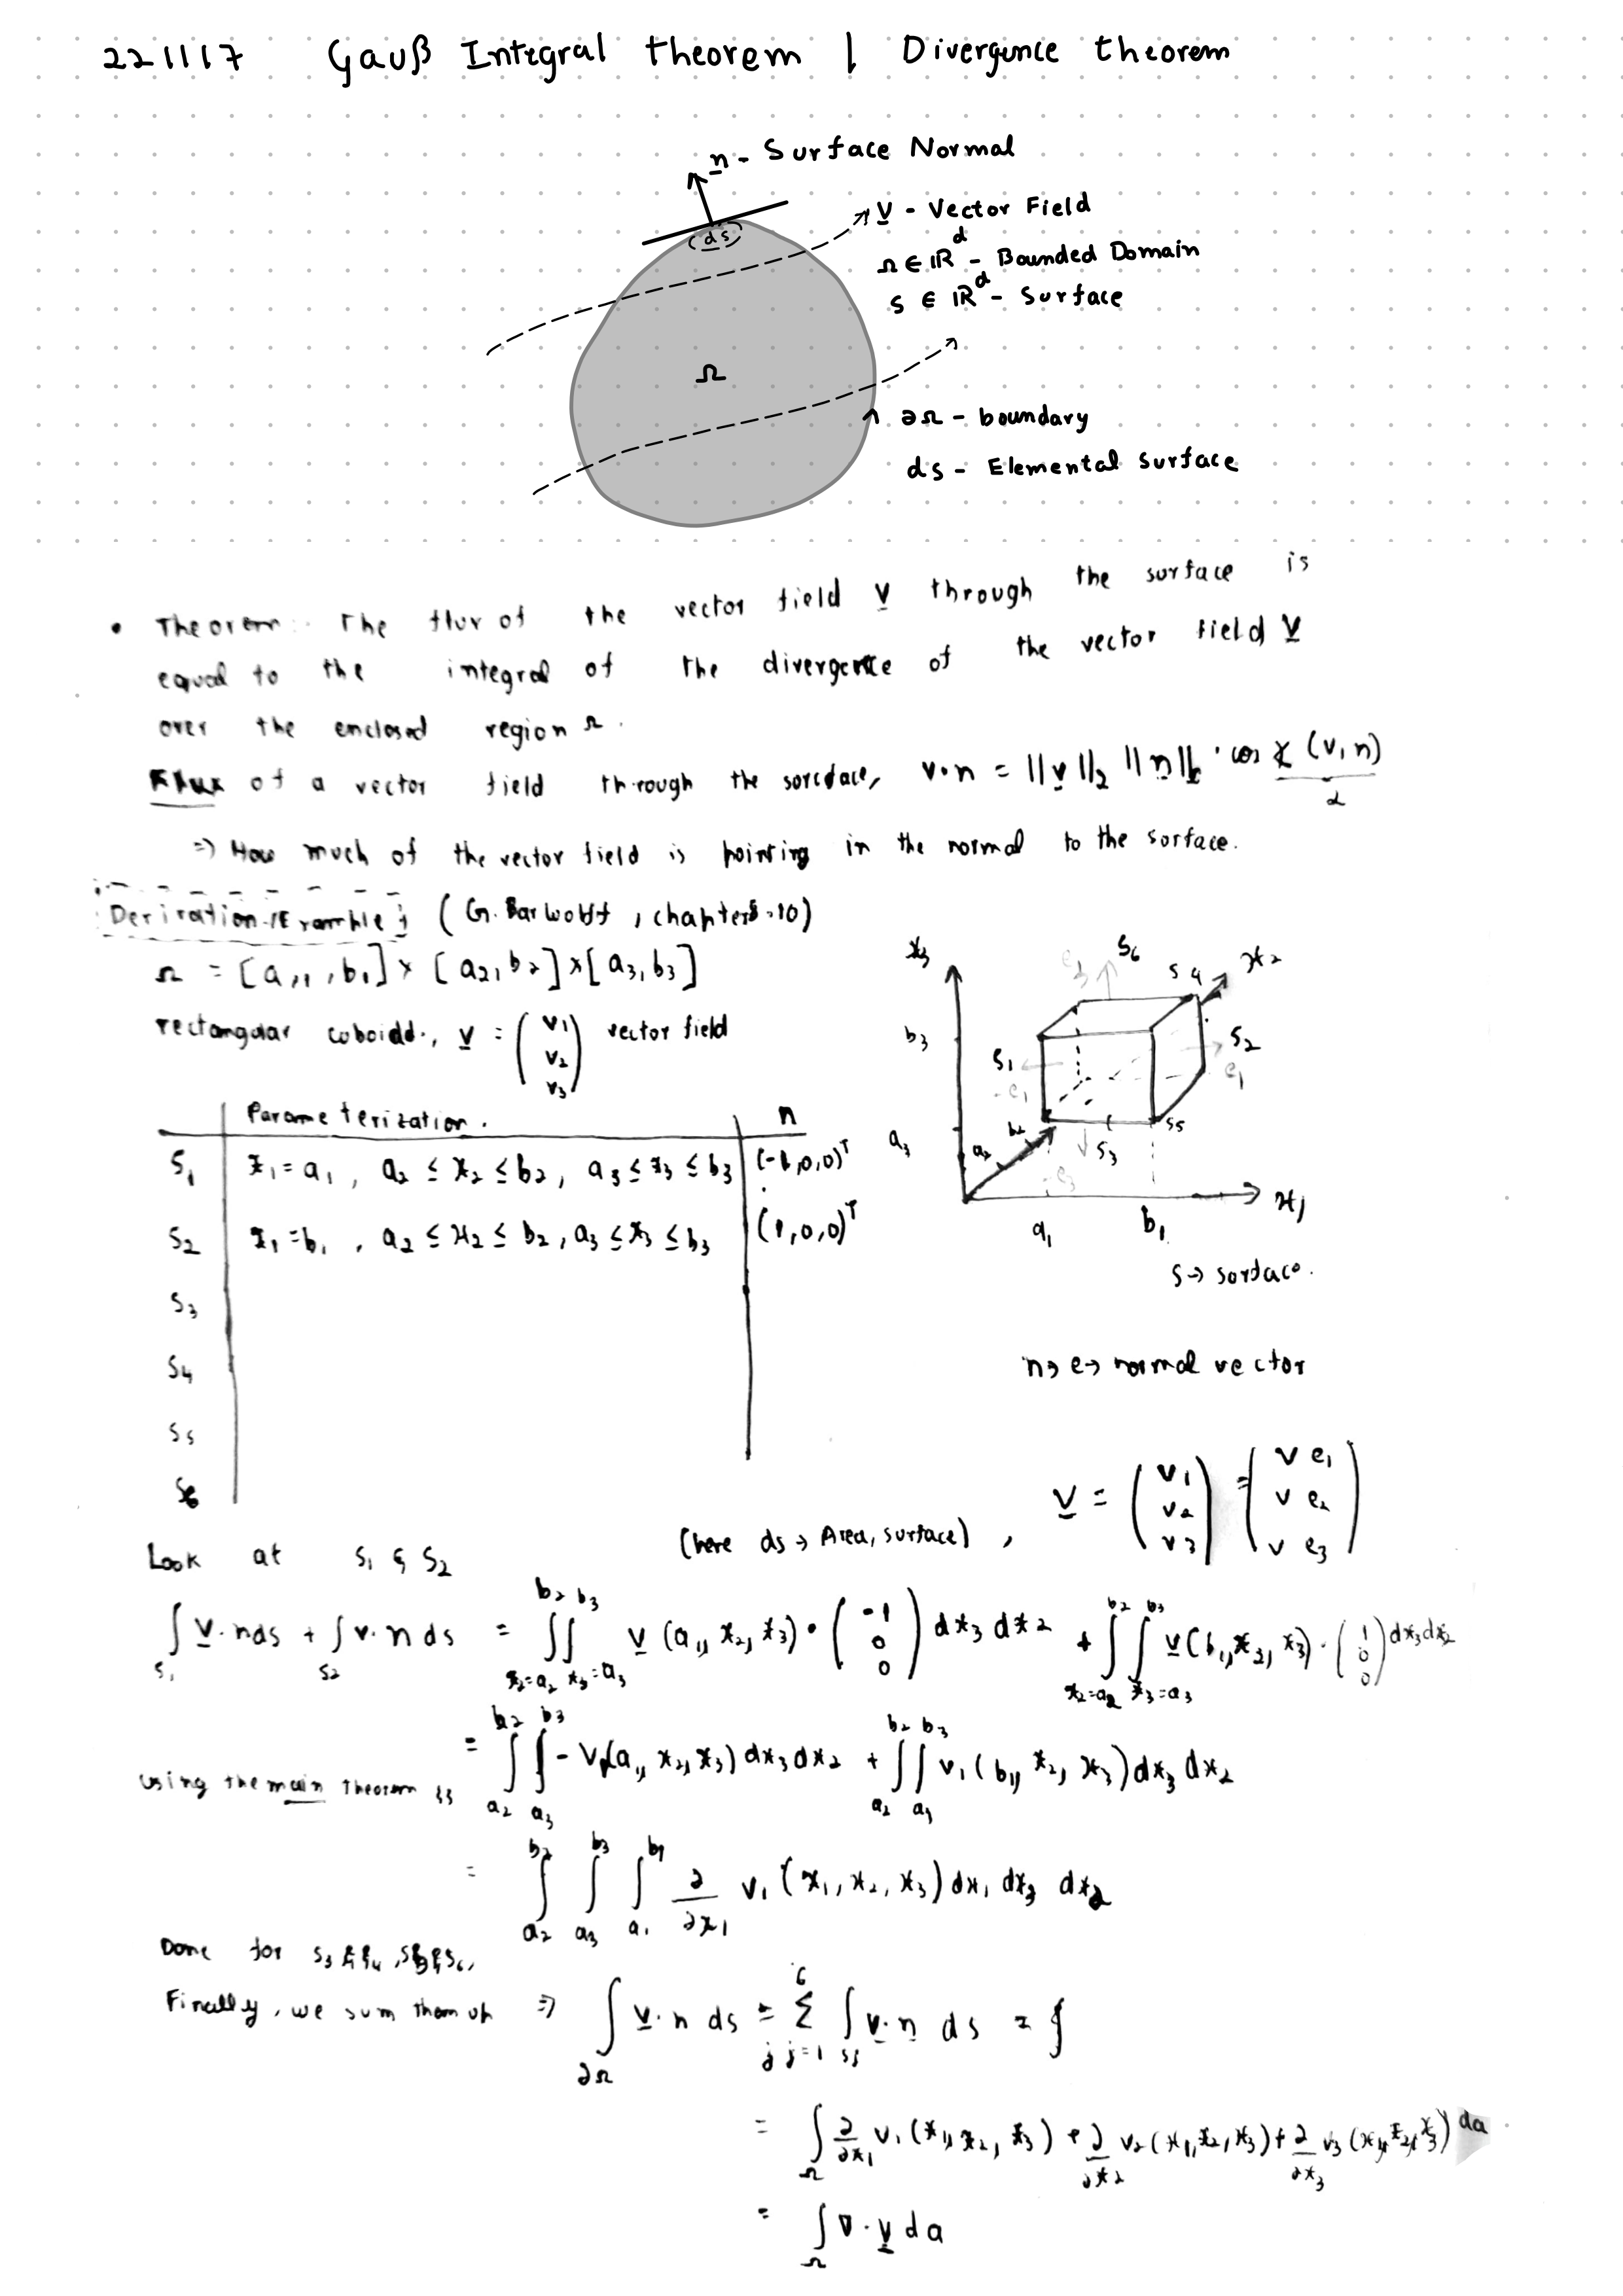 221117 Gauß Integral theorem | Divergence theorem
n - Surface Normal
(ds)
V - Vector Field
Ω ∈ ℝ^d - Bounded Domain
S ∈ ℝ^d - Surface
Ω
∂Ω - boundary
ds - Elemental Surface
• Theorem: The flux of the vector field V through the surface is
equal to the integral of the divergence of the vector field V
over the enclosed region Ω.
Flux of a vector field through the surface, v·n = ||v||₂ ||n||₂ · cos ∡ (v, n)
α
⇒ How much of the vector field is pointing in the normal to the surface.
Derivation /Example: (G. Barwolff, chapter 8.10)
Ω = [a₁, b₁] × [a₂, b₂] × [a₃, b₃]
rectangular coboidd., V = (v₁ v₂ v₃) vector field
x₃ e₃ S₆ S₄ x₂
b₃ S₁ -e₁ S₂ e₁
a₃ a₂ b₂ S₃ -e₃ S₅
a₁ b₁ x₁
S → surface.
Parameterization. n
S₁ x₁ = a₁, a₂ ≤ x₂ ≤ b₂, a₃ ≤ x₃ ≤ b₃ (-1,0,0)ᵀ
S₂ x₁ = b₁, a₂ ≤ x₂ ≤ b₂, a₃ ≤ x₃ ≤ b₃ (1,0,0)ᵀ
S₃
S₄
S₅
S₆
n → e → normal vector
V = (v₁ v₂ v₃) = (v e₁ v e₂ v e₃)
(here ds → Area, surface) ,
Look at S₁ & S₂
∫_{S₁} V·n ds + ∫_{S₂} v·n ds = ∫_{x₂=a₂}^{b₂} ∫_{x₃=a₃}^{b₃} V(a₁, x₂, x₃) · (-1 0 0) dx₃ dx₂ + ∫_{x₂=a₂}^{b₂} ∫_{x₃=a₃}^{b₃} V(b₁, x₂, x₃) · (1 0 0) dx₃ dx₂
= ∫_{a₂}^{b₂} ∫_{a₃}^{b₃} - V₁(a₁, x₂, x₃) dx₃ dx₂ + ∫_{a₂}^{b₂} ∫_{a₃}^{b₃} v₁(b₁, x₂, x₃) dx₃ dx₂
using the main theorem
= ∫_{a₂}^{b₂} ∫_{a₃}^{b₃} ∫_{a₁}^{b₁} ∂/∂x₁ v₁(x₁, x₂, x₃) dx₁ dx₃ dx₂
Done for S₃ & S₄, S₅ & S₆,
Finally, we sum them up ⇒ ∫_{∂Ω} V·n ds = Σ_{j=1}^{6} ∫_{Sj} V·n ds = ∮
= ∫_Ω ∂/∂x₁ v₁(x₁, x₂, x₃) + ∂/∂x₂ v₂(x₁, x₂, x₃) + ∂/∂x₃ v₃(x₁, x₂, x₃) da
= ∫_Ω ∇·V da